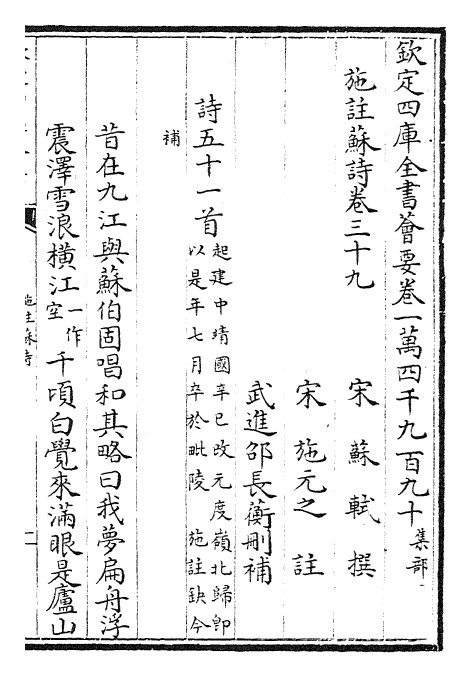 欽定四庫全書薈要卷一萬四千九百九十集部
施註蘇詩卷三十九
宋蘇軾撰
宋施元之註
武進邵長蘅刪補
詩五十一首起建中靖國辛巳改元度嶺北歸即
以是年七月卒於毗陵施註缺今
補
昔在九江與蘇伯固唱和其略曰我夢扁舟浮
震澤雪浪橫江一作空千頃白覺來滿眼是廬山
施註蘇詩